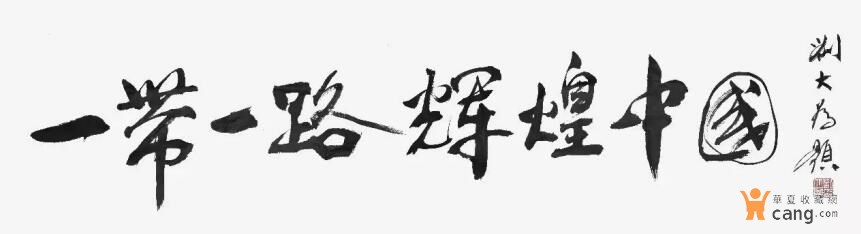 一带一路 辉煌中國
刘大为题
華夏收藏網
cang.com